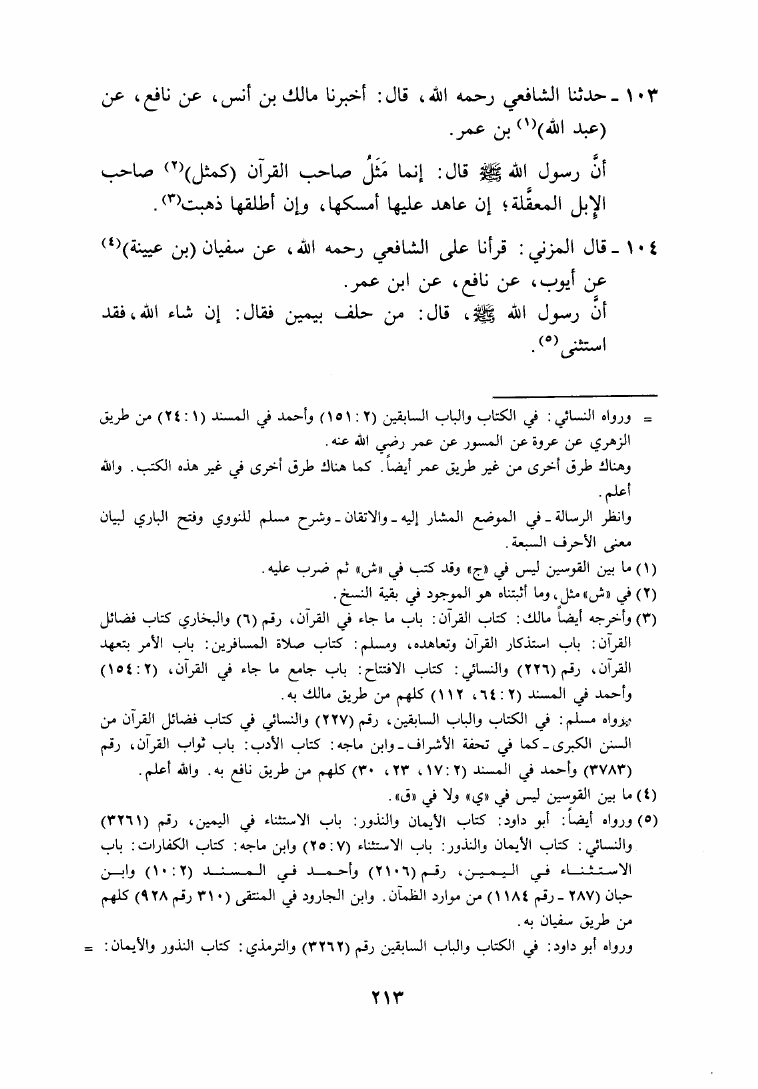 ١٠٣ ـ حدثنا الشافعي رحمه الله، قال: أخبرنا مالك بن أنس، عن نافع، عن
(عبد الله)(١) بن عمر.
أنَّ رسول الله ﷺ قال: إنما مَثَلُ صاحب القرآن (كمثل)(٢) صاحب
الإبل المعقَّلة؛ إن عاهد عليها أمسكها، وإن أطلقها ذهبت(٣).
١٠٤ ـ قال المزني: قرأنا على الشافعي رحمه الله، عن سفيان (بن عيينة)(٤)
عن أيوب، عن نافع، عن ابن عمر.
أنَّ رسول الله ﷺ، قال: من حلف بيمين فقال: إن شاء الله، فقد
استثنى(٥).
= ورواه النسائي: في الكتاب والباب السابقين (٢: ١٥١) وأحمد في المسند (١: ٢٤) من طريق
الزهري عن عروة عن المسور عن عمر رضي الله عنه.
وهناك طرق أخرى من غير طريق عمر أيضاً. كما هناك طرق أخرى في غير هذه الكتب. والله
أعلم.
وانظر الرسالة ـ في الموضع المشار إليه ـ والاتقان ـ وشرح مسلم للنووي وفتح الباري لبيان
معنى الأحرف السبعة.
(١) ما بين القوسين ليس في «ج» وقد كتب في «ش» ثم ضرب عليه.
(٢) في «ش» مثل، وما أثبتناه هو الموجود في بقية النسخ.
(٣) وأخرجه أيضاً مالك: كتاب القرآن: باب ما جاء في القرآن، رقم (٦) والبخاري كتاب فضائل
القرآن: باب استذكار القرآن وتعاهده، ومسلم: كتاب صلاة المسافرين: باب الأمر بتعهد
القرآن، رقم (٢٢٦) والنسائي: كتاب الافتتاح: باب جامع ما جاء في القرآن، (٢: ١٥٤)
وأحمد في المسند (٢: ٦٤، ١١٢) كلهم من طريق مالك به.
ورواه مسلم: في الكتاب والباب السابقين، رقم (٢٢٧) والنسائي في كتاب فضائل القرآن من
السنن الكبرى ـ كما في تحفة الأشراف ـ وابن ماجه: كتاب الأدب: باب ثواب القرآن، رقم
(٣٧٨٣) وأحمد في المسند (٢: ١٧، ٢٣، ٣٠) كلهم من طريق نافع به. والله أعلم.
(٤) ما بين القوسين ليس في «ي» ولا في «ق».
(٥) ورواه أيضاً: أبو داود: كتاب الأيمان والنذور: باب الاستثناء في اليمين، رقم (٣٢٦١)
والنسائي: كتاب الأيمان والنذور: باب الاستثناء (٧: ٢٥) وابن ماجه: كتاب الكفارات: باب
الاستثناء في اليمين، رقم (٢١٠٦) وأحمد في المسند (٢: ١٠) وابن
حبان (٢٨٧ ـ رقم ١١٨٤) من موارد الظمآن. وابن الجارود في المنتقى (٣١٠ رقم ٩٢٨) كلهم
من طريق سفيان به.
ورواه أبو داود: في الكتاب والباب السابقين رقم (٣٢٦٢) والترمذي: كتاب النذور والأيمان: =
٢١٣